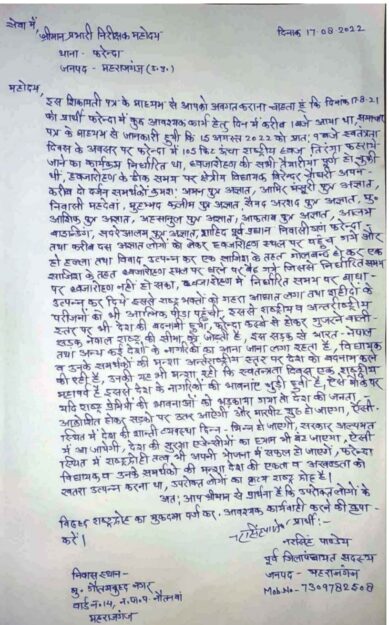 सेवा में,
श्रीमान प्रभारी निरीक्षक महोदय
दिनांक 17-08-2022
थाना - फरेन्दा
जनपद - महराजगंज (उ.प्र.)
महोदय,
इस शिकायती पत्र के माध्यम से आपको अवगत कराना चाहता है कि दिनांक 17-8-21
को प्रार्थी फरेन्दा में कुछ आवश्यक कार्य हेतु दिन में करीब 1 बजे आया था, समाचार
पत्र के माध्यम से जानकारी हुयी कि 15 अगस्त 2022 को प्रातः 9 बजे स्वतंत्रता
दिवस के अवसर पर फरेन्दा में 105 फिट ऊंचा राष्ट्रीय ध्वज तिरंगा फहराये
जाने का कार्यक्रम निर्धारित था, ध्वजारोहण की सभी तैयारियां पूर्ण हो चुकी
थी, ध्वजारोहण के ठीक समय पर क्षेत्रीय विधायक विरेन्द्र चौधरी अपने
करीब दो दर्जन समर्थकों क्रमशः अमन पुत्र अज्ञात, आमिर मंसूरी पुत्र अज्ञात,
निवासी महदेवा, मुहम्मद कलीम पुत्र अज्ञात, सैयद अरशद पुत्र अज्ञात, मु.
आशिक पुत्र अज्ञात, अहसानुल पुत्र अज्ञात, आफताब पुत्र अज्ञात, आलम
सदरे आलम पुत्र अज्ञात, शाहिद पूर्व प्रधान निवासी ग्राम फरेन्दा
तथा करीब दस अज्ञात लोगों को लेकर ध्वजारोहण स्थल पर पहुंच गये और
हो हल्ला तथा विवाद उत्पन्न कर एक साजिश के तहत गोलबन्द हो कर एक
साजिश के तहत ध्वजारोहण स्थल पर धरने पर बैठ गये जिससे निर्धारित समय
पर ध्वजारोहण नहीं हो सका, ध्वजारोहण में निर्धारित समय पर बाधा
उत्पन्न कर दिये इससे राष्ट्र भक्तों को गहरा आघात लगा तथा शहीदों के
परिजनों को भी आत्मिक पीड़ा पहुंची, इससे राष्ट्रीय व अन्तर्राष्ट्रीय
स्तर पर भी देश की बदनामी हुयी, फरेन्दा कस्बे से होकर गुजरने वाली
सड़क नेपाल राष्ट्र की सीमा को जोड़ती है, इस सड़क से भारत-नेपाल
तथा अन्य कई देशों के नागरिकों का आना जाना लगा रहता है, विधायक
व उनके समर्थकों की मन्शा अन्तर्राष्ट्रीय स्तर पर देश को बदनाम करने
की रही है, उनकी यह भी मन्शा रही कि स्वतन्त्रता दिवस एक राष्ट्रीय
महापर्व है इससे देश के नागरिकों की भावनाएं जुड़ी हुयी है, ऐसे मौके पर
यदि राष्ट्र प्रेमियों की भावनाओं को भड़काया गया तो देश की जनता
आक्रोशित होकर सड़कों पर उतर आएगी और मारपीट शुरू हो जाएगा, ऐसी
स्थिति में देश की शान्ति व्यवस्था छिन्न-भिन्न हो जाएगी, सरकार अल्पमत
में आ जायेगी, देश की सुरक्षा एजेन्सीयों का ध्यान भी बंट जाएगा, ऐसी
स्थिति में राष्ट्रद्रोही तत्व भी अपनी योजना में सफल हो जाएगें, फरेन्दा
विधायक व उनके समर्थकों की मन्शा देश की एकता व अखण्डता को
खतरा उत्पन्न करना था, उपरोक्त लोगों का कृत्य राष्ट्र द्रोह है।
अतः आप श्रीमान से प्रार्थना है कि उपरोक्त लोगों के
विरुद्ध राष्ट्रद्रोह का मुकदमा दर्ज कर आवश्यक कार्यवाही करने की कृपा
करें।
प्रार्थी :-
नरसिंह पाण्डेय
पूर्व जिलापंचायत सदस्य
जनपद - महराजगंज
Mob. No - 7309782508
निवास स्थान -
मु. गौतमबुद्ध नगर
वार्ड नं 14, न.पा.प. नौतनवां
महराजगंज